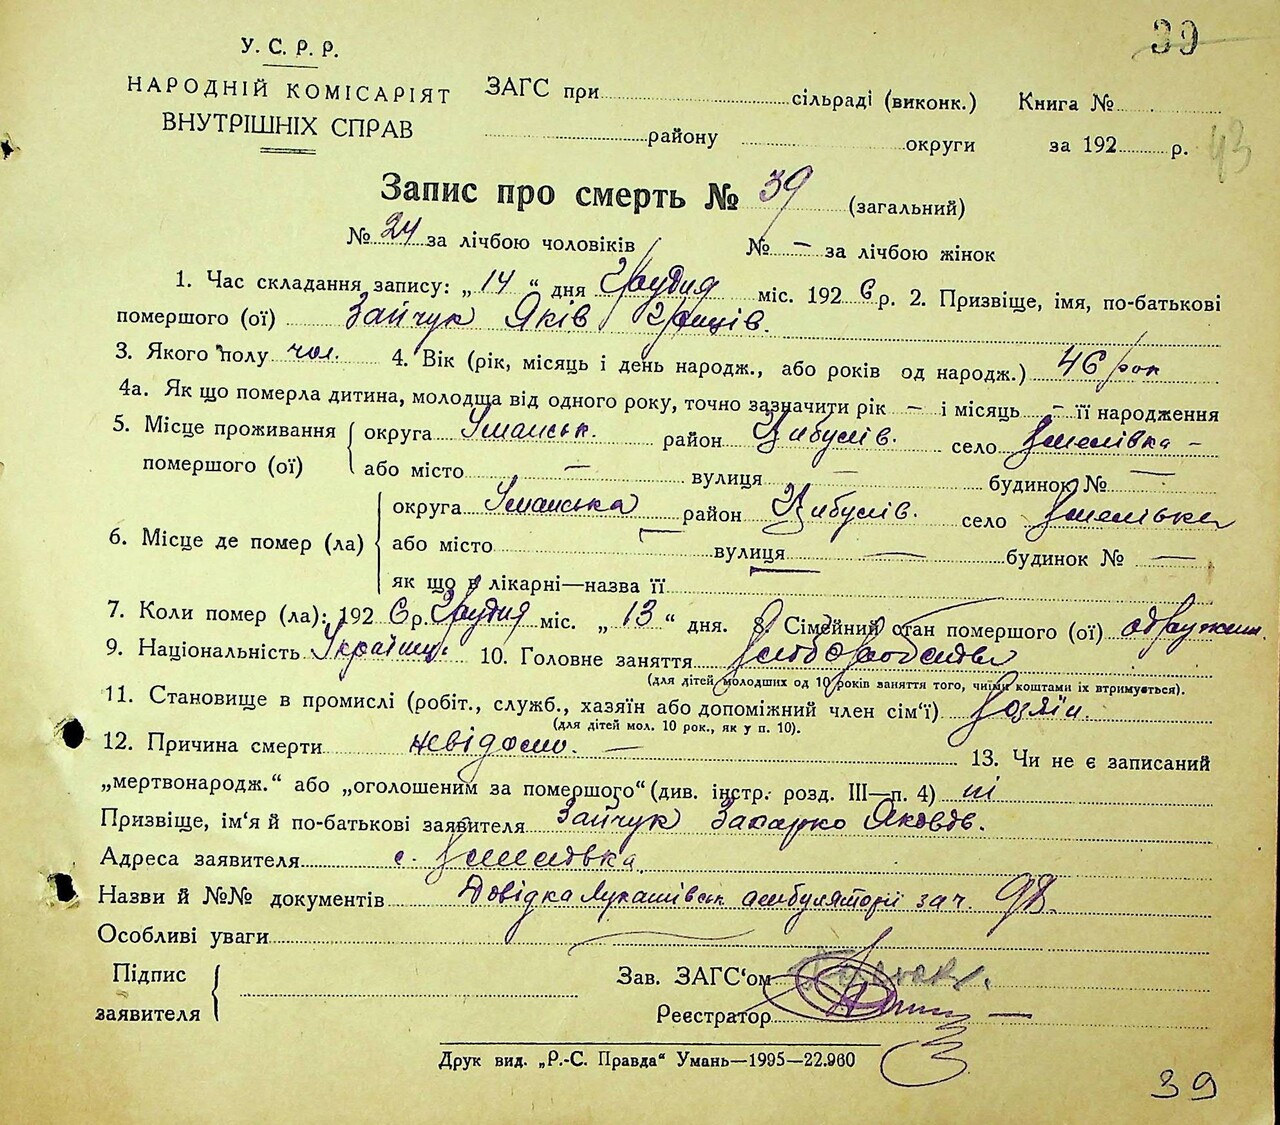 39
У. С. Р. Р.
НАРОДНІЙ КОМІСАРІЯТ
ВНУТРІШНІХ СПРАВ
ЗАГС при сільраді (виконк.) Книга №
району округи за 192 р. 43
Запис про смерть № 39 (загальний)
№ 24 за лічбою чоловіків № — за лічбою жінок
1. Час складання запису: „14“ дня Грудня міс. 1926 р. 2. Призвіще, імя, по-батькові
помершого (ої) Зайчук Яків Гриців.
3. Якого полу чол. 4. Вік (рік, місяць і день народж., або років од народж.) 46 рок
4а. Як що померла дитина, молодща від одного року, точно зазначити рік — і місяць — її народження
5. Місце проживання помершого (ої) округа Уманськ. район Цибулів. село
або місто — вулиця — будинок № —
6. Місце де помер (ла) округа Уманська район Цибулів. село
або місто вулиця — будинок № —
як що в лікарні—назва її
7. Коли помер (ла): 1926 р. Грудня міс. „13“ дня. 8. Сімейний стан помершого (ої) одружен.
9. Національність Українц. 10. Головне заняття
(для дітей молодших од 10 років заняття того, чиїми коштами їх втримується).
11. Становище в промислі (робіт., служб., хазяїн або допоміжний член сім‘ї) Хозяїн.
(для дітей мол. 10 рок., як у п. 10).
12. Причина смерти невідомо. — 13. Чи не є записаний
„мертвонародж.“ або „оголошеним за помершого“ (див. інстр. розд. III—п. 4) ні
Призвіще, ім‘я й по-батькові заявителя Зайчук Захарко Яковів.
Адреса заявителя с.
Назви й №№ документів Довідка Лукашівськ амбуляторії за ч. 98.
Особливі уваги
Підпис заявителя
Зав. ЗАГС‘ом
Реєстратор
Друк вид. „Р.-С. Правда“ Умань—1995—22.960
39